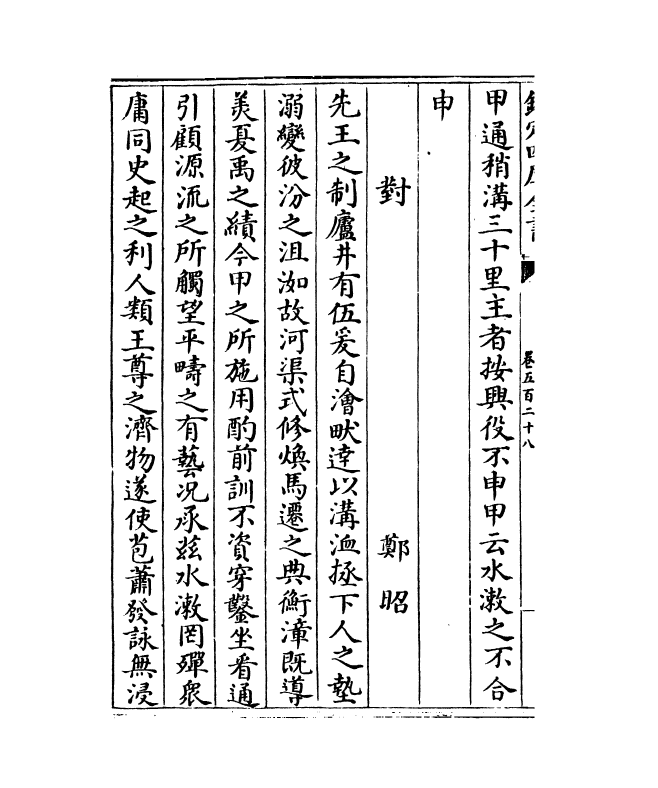 欽定四庫全書
卷五百二十八
甲通稍溝三十里主者按興役不申甲云水漱之不合
申
對
鄭昭
先王之制廬井有伍爰自澮畎達以溝洫拯下人之墊
溺變彼汾之沮洳故河渠式修煥馬遷之典衡漳既導
羙夏禹之績今甲之所施用酌前訓不資穿鑿坐看通
引顧源流之所觸望平疇之有藝况承玆水漱罔殫衆
庸同史起之利人類王尊之濟物遂使苞蕭發詠無浸